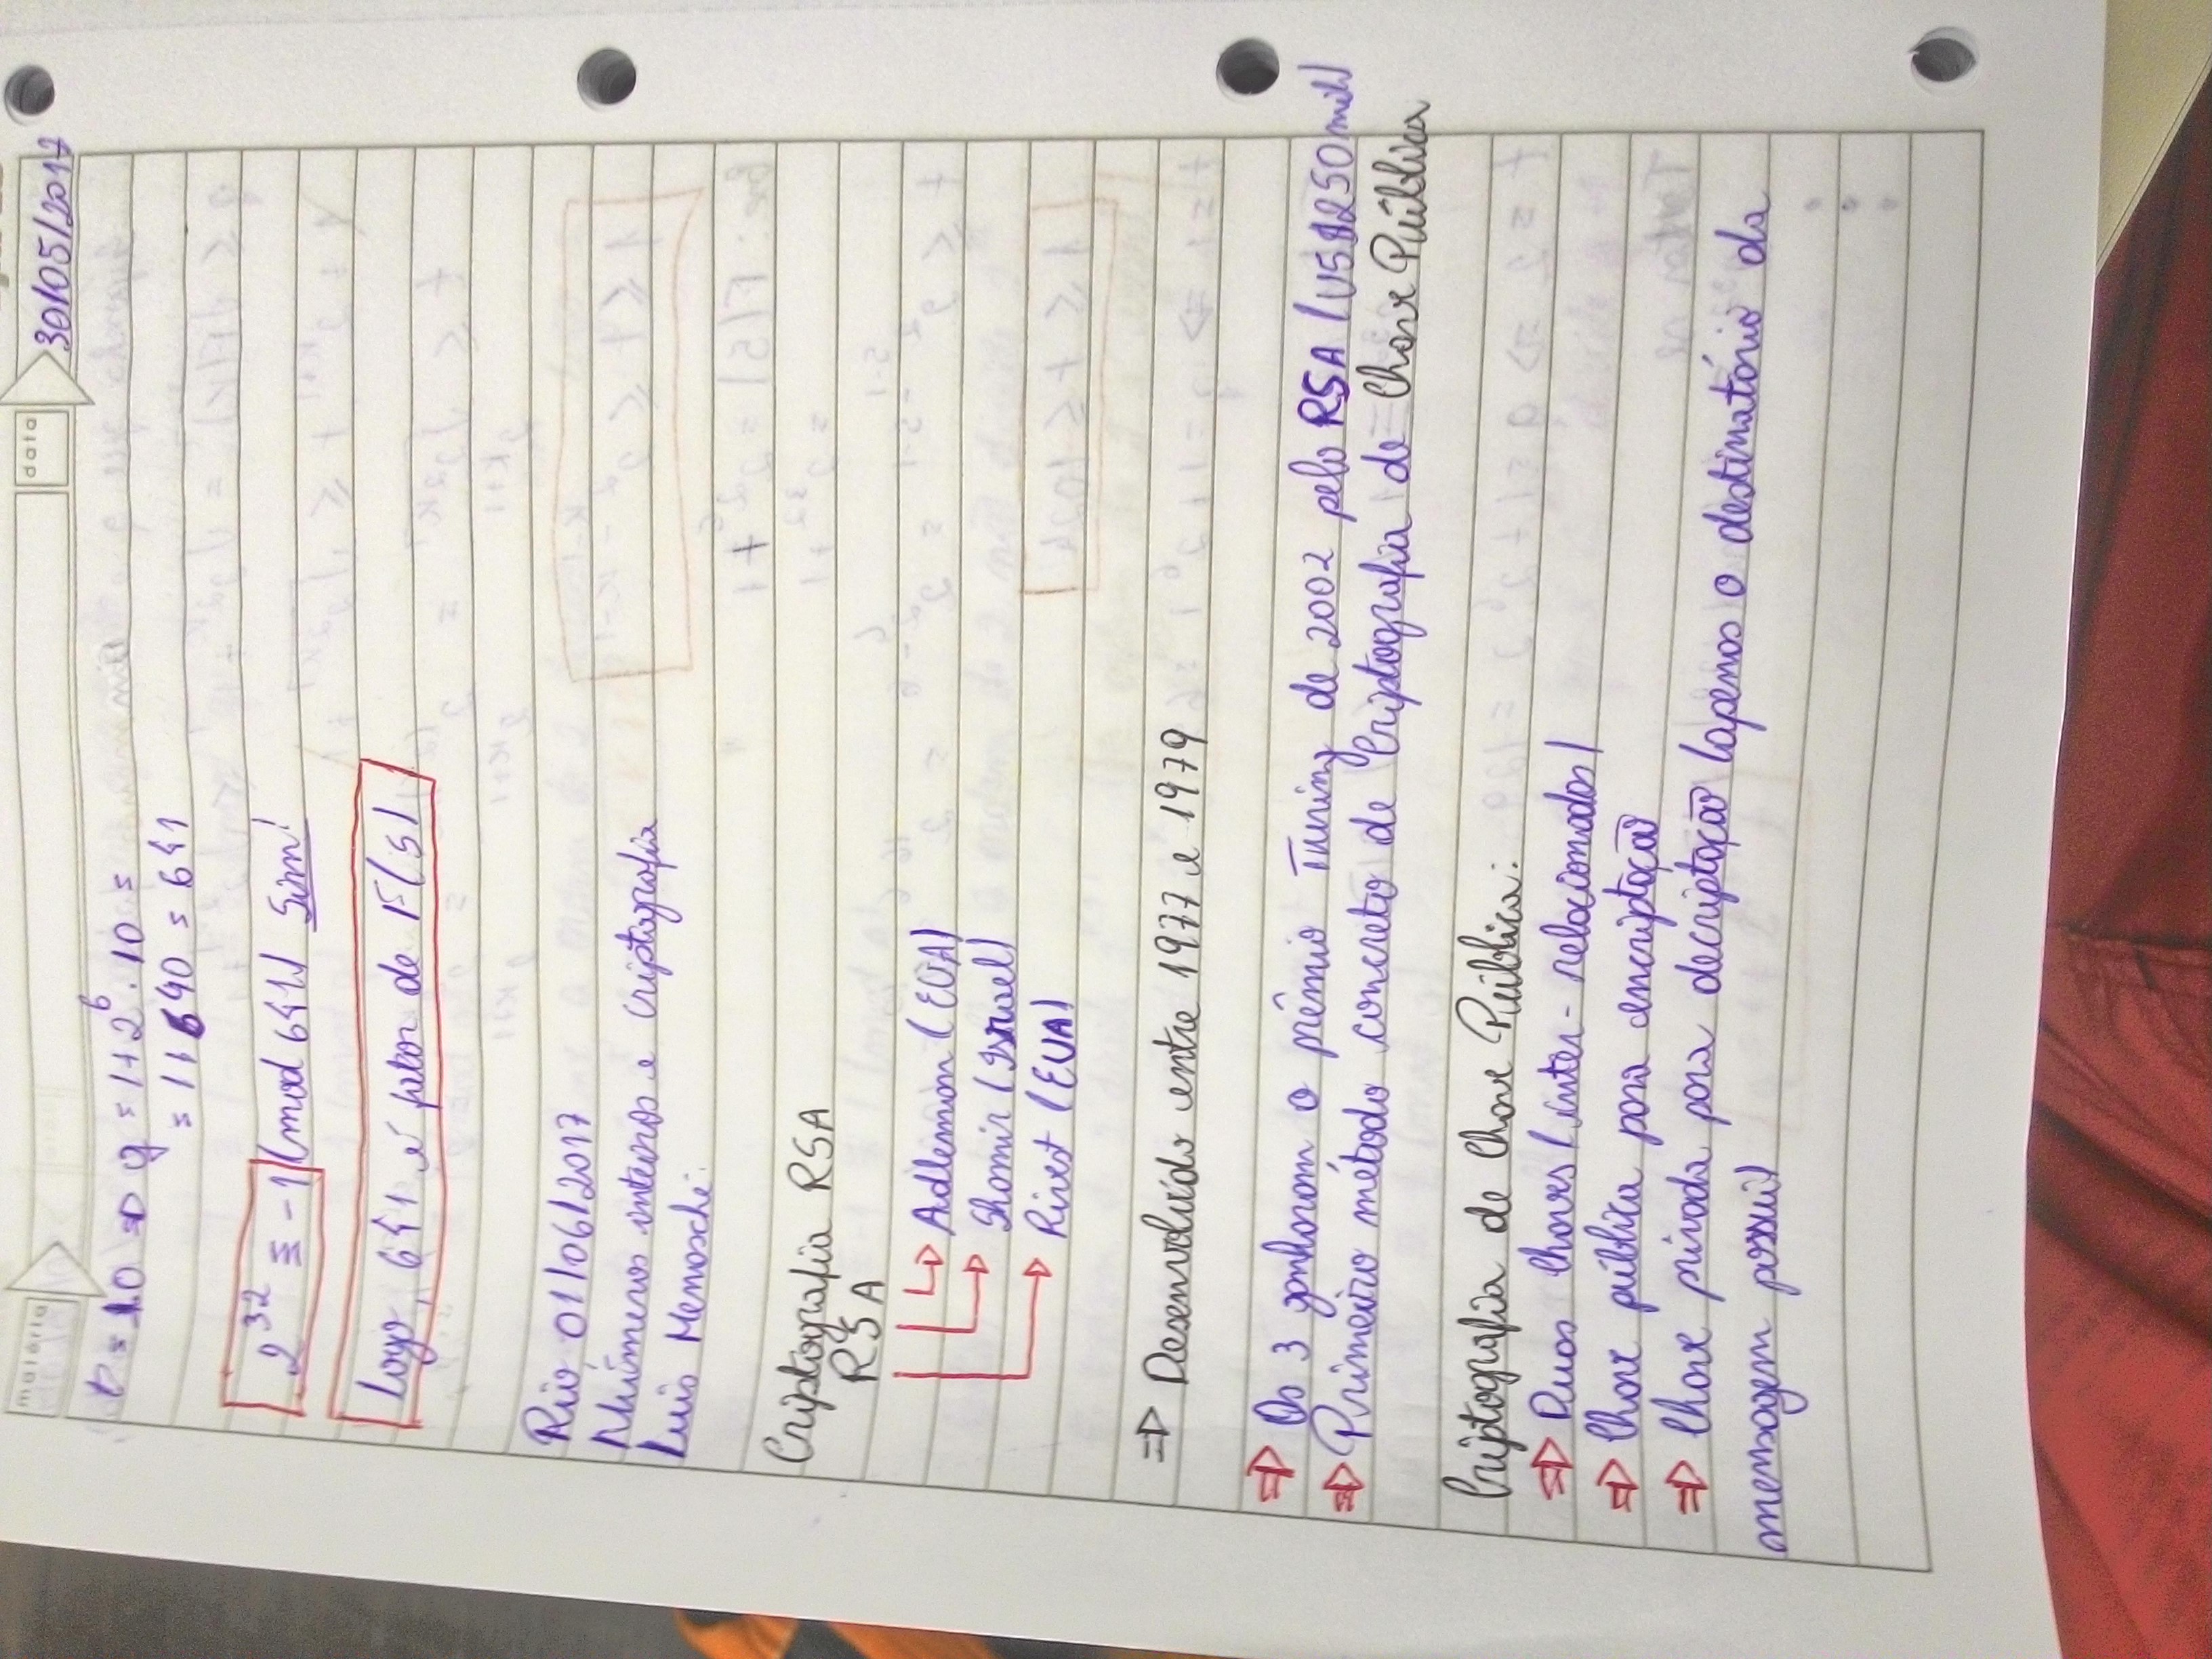 matéria
data
30/05/2017
t = 10 ⇒ q = 1+2^6 . 10 =
= 1+640 = 641
2^32 ≡ -1 (mod 641) Sim!
Logo, 641 é fator de F(5)
Rio, 01/06/2017
Números inteiros e criptografia
Luis Menasché
Criptografia RSA
RSA
Adleman (EUA)
Shamir (Israel)
Rivest (EUA)
⇒ Desenvolvido entre 1977 e 1979
⇒ Os 3 ganharam o prêmio Turing de 2002 pelo RSA (US$250 mil)
⇒ Primeiro método concreto de Criptografia de Chave Pública
Criptografia de Chave Pública:
⇒ Duas Chaves (inter-relacionadas)
⇒ Chave pública para encriptação
⇒ Chave privada para decriptação (apenas o destinatário da
mensagem possui)